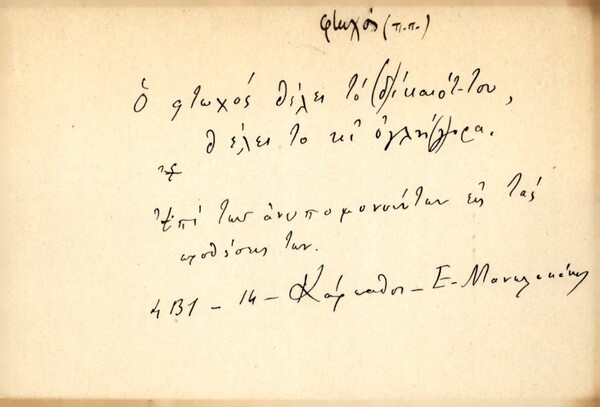 φτωχός (π.π.)
Ὁ φτωχός θέλει τό (δ)ίκαιό-του,
θέλει το κι ὀγλή(γ)ορα.
Ἐπί των ἀνυπομονούντων εἰς τάς
προθέσεις των.
431 - 14 - Κάρπαθος - Ε. Μανωλακάκης